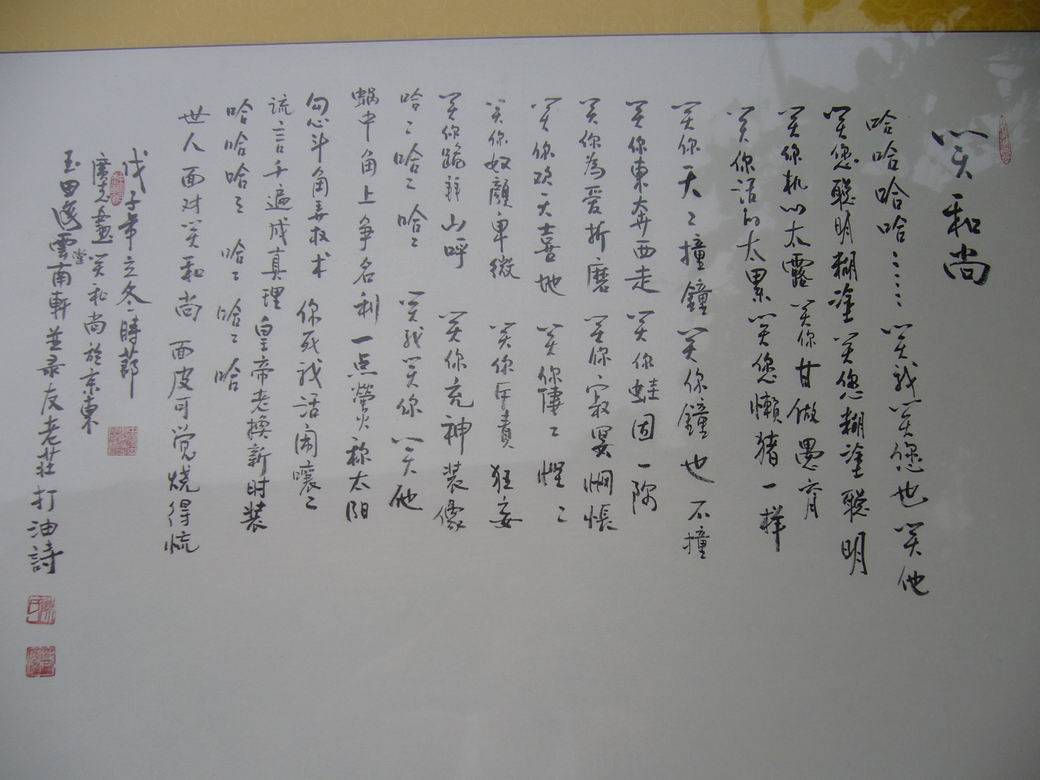 笑和尚
哈哈哈哈⋮⋮ 笑我笑您也笑他
笑您聪明糊塗 笑您糊塗聪明
笑你机心太露 笑你甘做愚盲
笑你活的太累 笑您懒猪一样
笑你天〻撞鐘 笑你鐘也不撞
笑你東奔西走 笑你蛙困一隅
笑你為爱折磨 笑你寂寞惆怅
笑你欢天喜地 笑你悽〻惶〻
笑你奴颜卑微 笑你斥責狂妄
笑你跪拜山呼 笑你充神装像
哈〻哈〻哈〻 笑我笑你 笑他
蝸牛角上争名利 一点萤火称太阳
勾心斗角弄权术 你死我活闹嚷〻
谎言千遍成真理 皇帝老换新时装
哈哈哈〻 哈〻哈〻哈
世人面对笑和尚 面皮可觉烧得慌
戊子年立冬時節
廣尧畫笑和尚於京東
玉田逸雲堂南軒並录友老莊打油詩